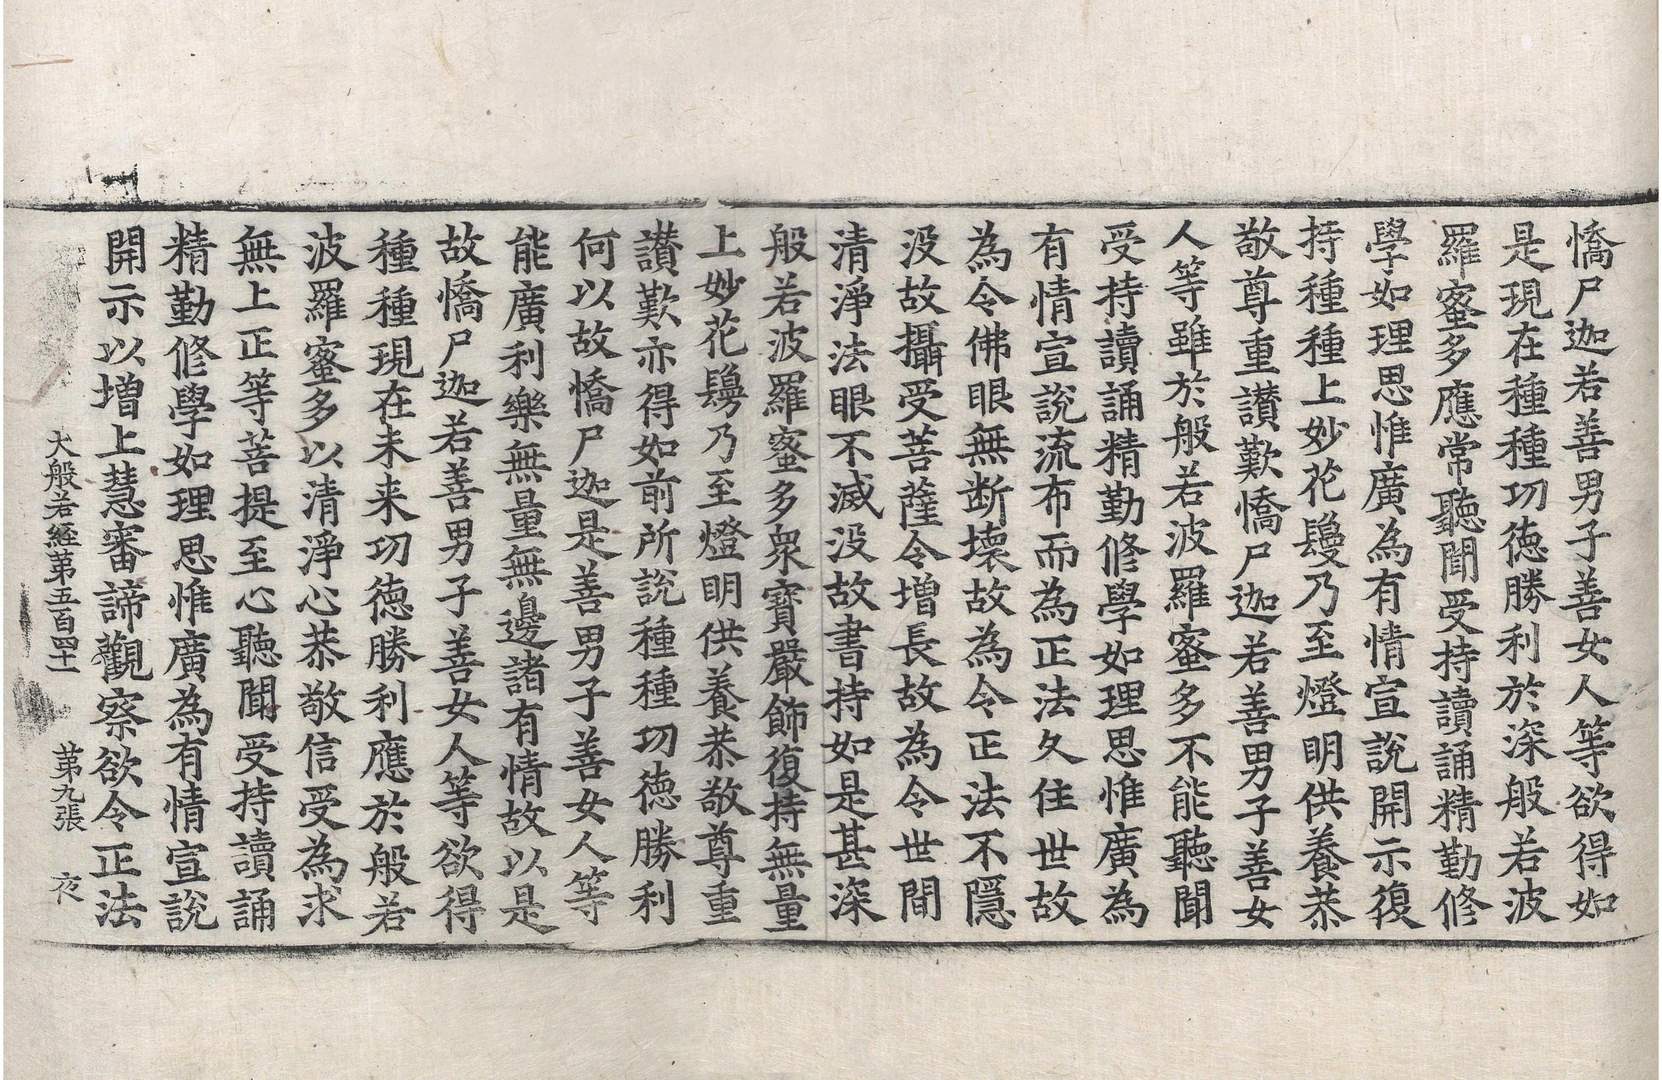 憍尸迦若善男子善女人等欲得如
是現在種種功徳勝利於深般若波
羅蜜多應常聽聞受持讀誦精勤修
學如理思惟廣為有情宣說開示復
持種種上妙花鬘乃至燈明供養恭
敬尊重讃歎憍尸迦若善男子善女
人等雖於般若波羅蜜多不能聽聞
受持讀誦精勤修學如理思惟廣為
有情宣說流布而為正法久住世故
為令佛眼無断壞故為令正法不隱
没故攝受菩薩令增長故為令世間
清淨法眼不滅没故書持如是甚深
般若波羅蜜多衆寳嚴飾復持無量
上妙花鬘乃至燈明供養恭敬尊重
讃歎亦得如前所說種種功徳勝利
何以故憍尸迦是善男子善女人等
能廣利樂無量無邊諸有情故以是
故憍尸迦若善男子善女人等欲得
種種現在未来功徳勝利應於般若
波羅蜜多以清淨心恭敬信受為求
無上正等菩提至心聽聞受持讀誦
精勤修學如理思惟廣為有情宣說
開示以增上慧審諦觀察欲令正法
大般若経第五百四十 第九張 夜